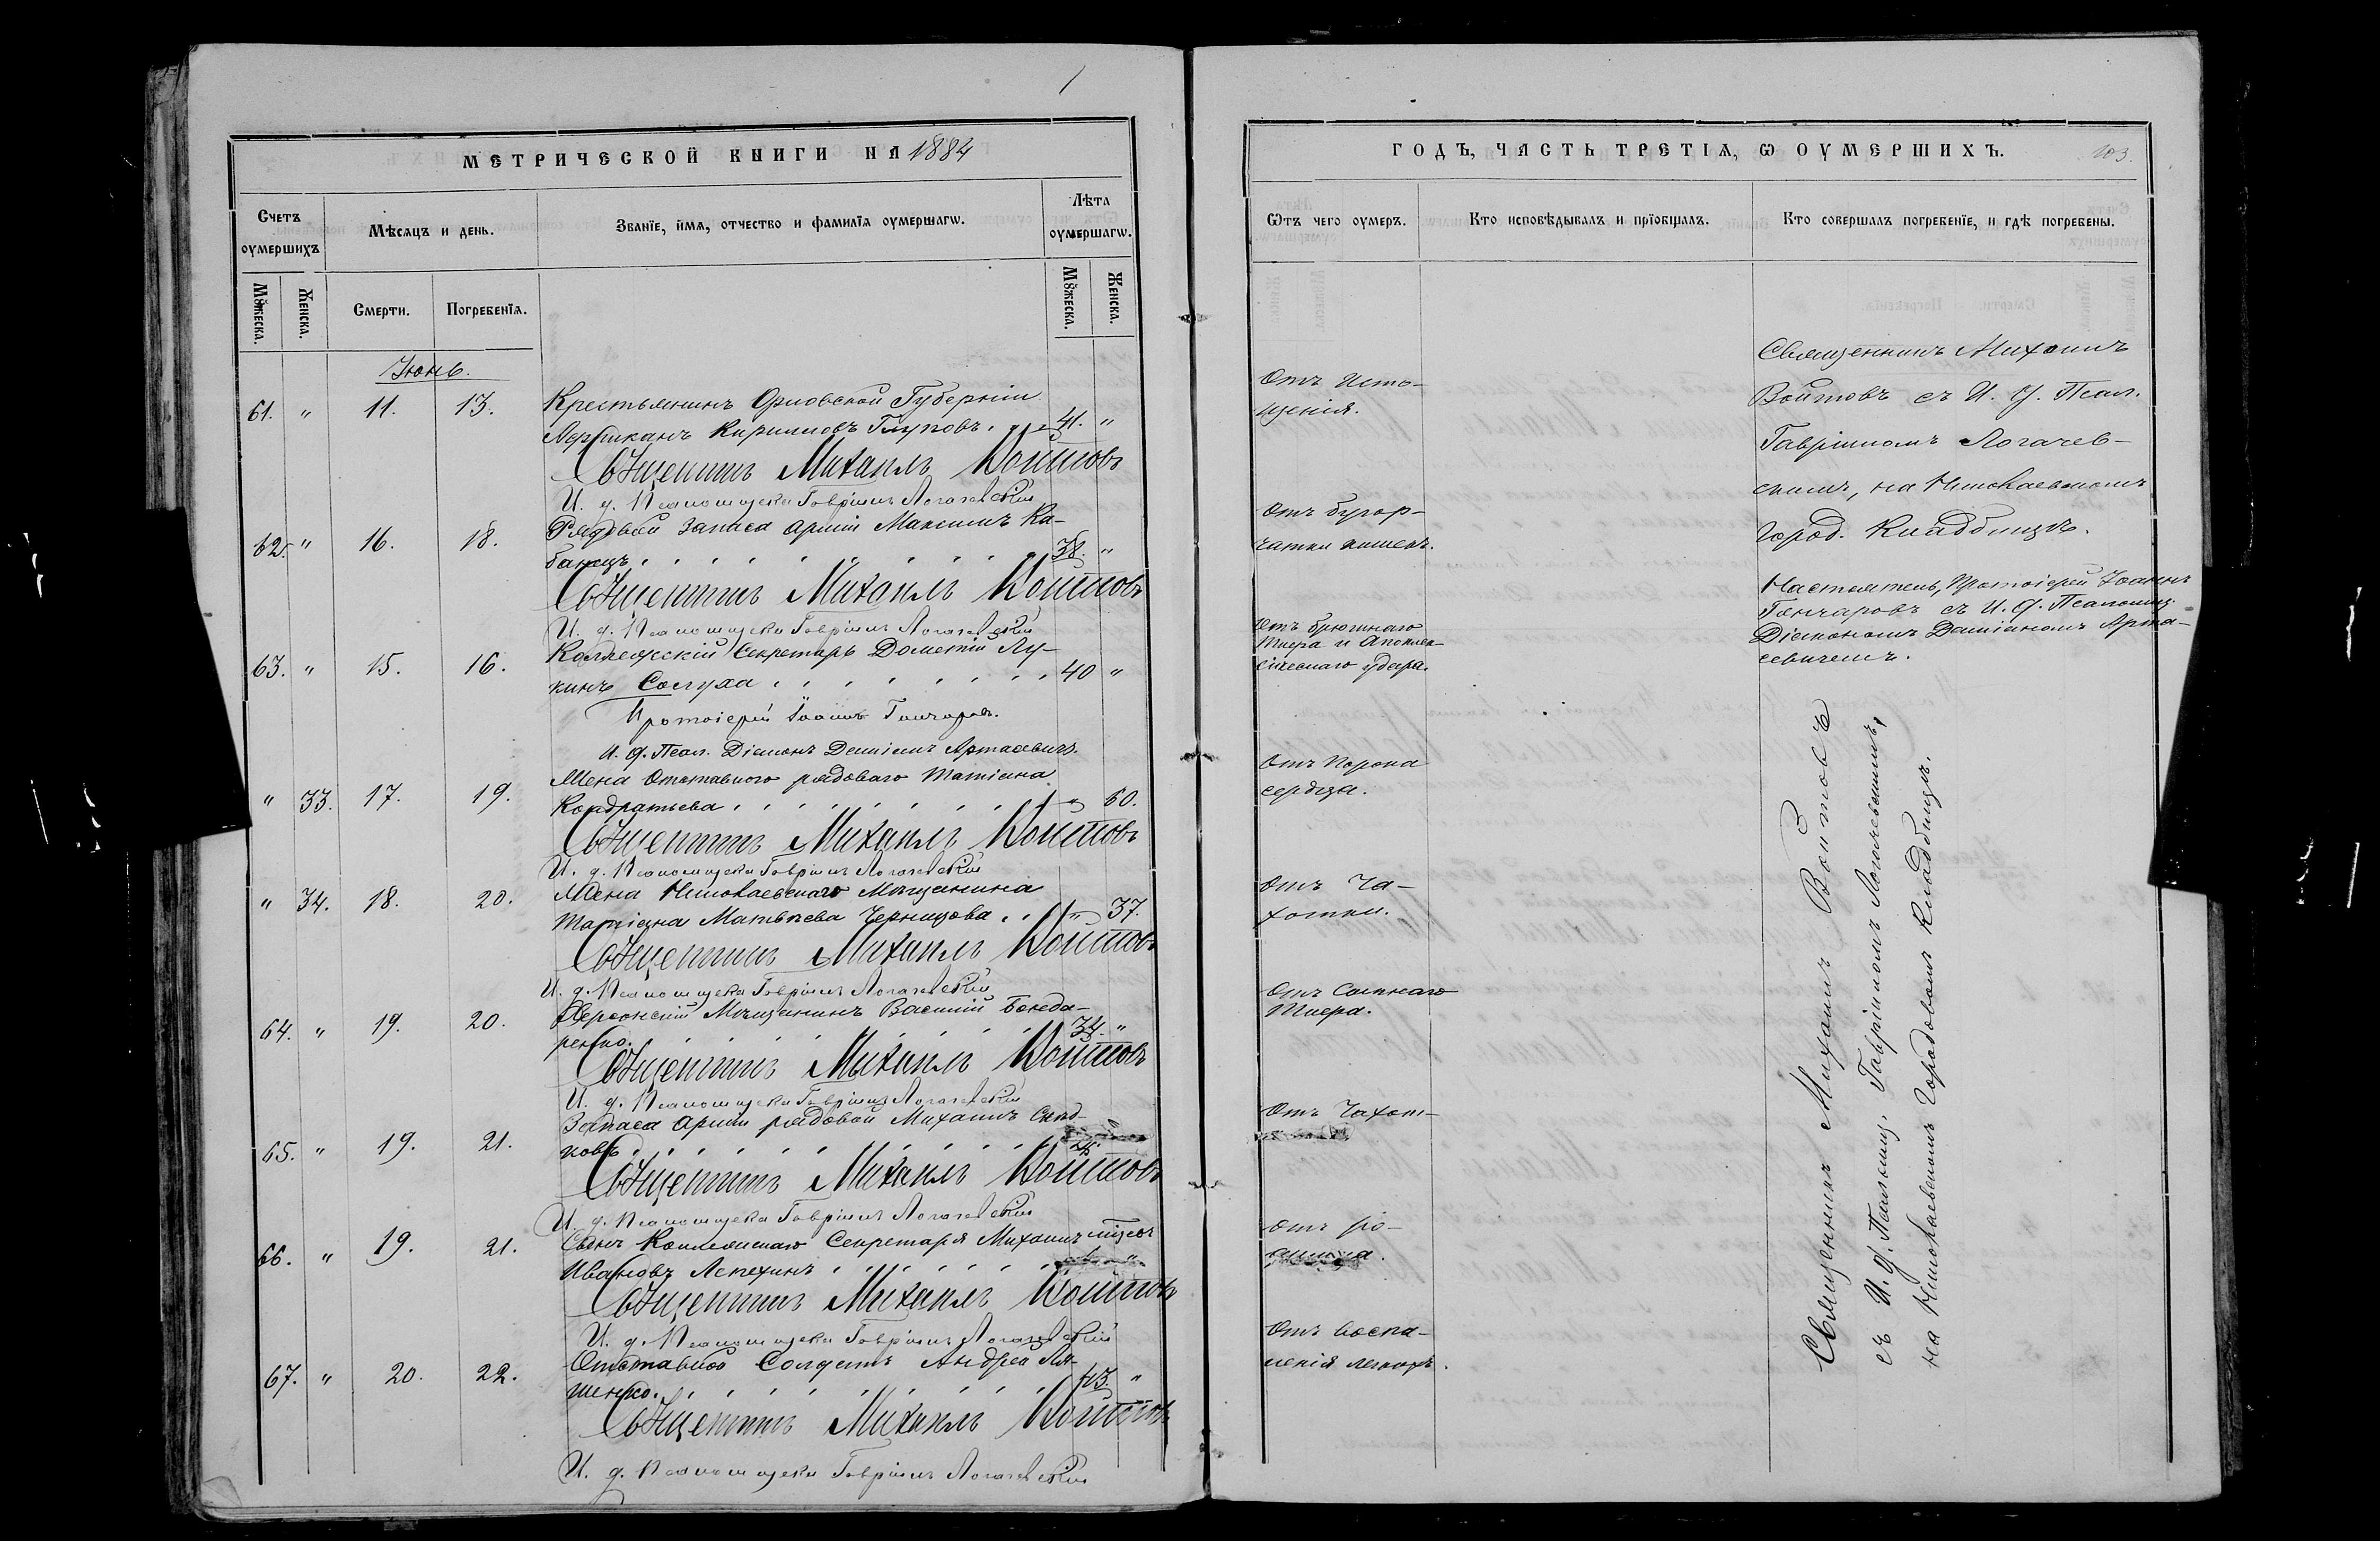 МЕТРИЧЕСКОЙ КНИГИ НА 1884
Счетъ оумершихъ
Мѣсяцъ и день.
Званїе, имя, отчество и фамилїя оумершагѡ.
Лѣта оумершагѡ.
Мꙋжеска.
Женска.
Смерти.
Погребенїя.
Мꙋжеска.
Женска.
Іюнь.
61. " 11. 13. Крестьянинъ Орловской Губерніи
Африканъ Кирилловъ Глуповъ. 41. "
Священникъ Михаилъ Войтовъ
И. д. Псаломщика Гавріилъ Логачевскій
62. " 16. 18. Рядовой запаса арміи Максимъ Ка-
банецъ. 38. "
Священникъ Михаилъ Войтовъ
И. д. Псаломщика Гавріилъ Логачевскій
63. " 15. 16. Коллежскій Секретарь Дометій Лу-
кинъ Солуха 40 "
Протоіерей Іоаннъ Гончаровъ.
И. д. Псал. Діаконъ Даміанъ Артасевичъ.
" 33. 17. 19. Жена Отставного рядоваго Татіана
Кондратьева " 60.
Священникъ Михаилъ Войтовъ
И. д. Псаломщика Гавріилъ Логачевскій
" 34. 18. 20. Жена Николаевскаго Мѣщанина
Татіана Матвѣева Чернцова " 37.
Священникъ Михаилъ Войтовъ
И. д. Псаломщика Гавріилъ Логачевскій
64. " 19. 20. Херсонскій Мѣщанинъ Василій Бонда-
ренко. 34. "
Священникъ Михаилъ Войтовъ
И. д. Псаломщика Гавріилъ Логачевскій
65. " 19. 21. Запаса арміи рядовой Михаилъ
новъ.
Священникъ Михаилъ Войтовъ
И. д. Псаломщика Гавріилъ Логачевскій
66. " 19. 21. Сынъ Коллежскаго Секретаря Михаилъ
Ивановъ Лепехинъ
Священникъ Михаилъ Войтовъ
И. д. Псаломщика Гавріилъ Логачевскій
67. " 20. 22. Отставной Солдатъ Андрей Ля-
шенко. 43. "
Священникъ Михаилъ Войтовъ
И. д. Псаломщика Гавріилъ Логачевскій
ГОДЪ, ЧАСТЬ ТРЕТІЯ, Ѡ ОУМЕРШИХЪ. 103.
Ѿтъ чего оумеръ.
Кто исповѣдывалъ и прїобщалъ.
Кто совершалъ погребенїе, и гдѣ погребены.
Отъ исто-
щенія.
Отъ бугор-
чатки кишекъ.
Отъ брюшнаго
тифа и Апоплек-
сическаго удара.
Отъ порока
сердца.
Отъ Ча-
хотки.
Отъ Сыпнаго
Тифа.
Отъ Чахот-
Отъ ро-
Отъ воспа-
ленія легкихъ.
Священникъ Михаилъ
Войтовъ съ И. д. Псал.
Гавріиломъ Логачев-
скимъ, на Николаевскомъ
Город. Кладбищѣ.
Настоятель, Протоіерей Іоаннъ
Гончаровъ съ И. д. Псаломщ.
Діакономъ Даміаномъ Арта-
севичемъ.
Священникъ Михаилъ Войтовъ
съ И. д. Псаломщ. Гавріиломъ Логачевскимъ,
на Николаевскомъ Городовомъ Кладбищѣ.